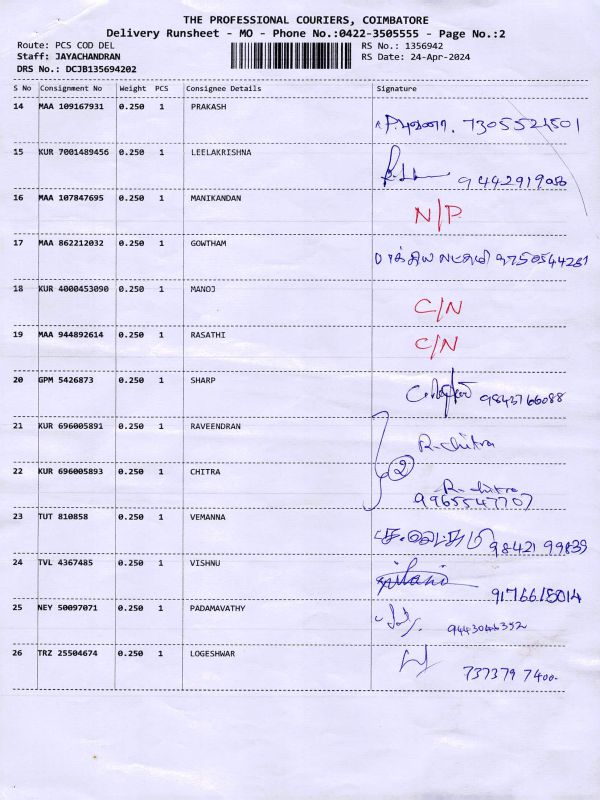 THE PROFESSIONAL COURIERS, COIMBATORE
Delivery Runsheet - MO - Phone No.:0422-3505555 - Page No.:2
Route: PCS COD DEL RS No.: 1356942
Staff: JAYACHANDRAN RS Date: 24-Apr-2024
DRS No.: DCJB135694202
S No Consignment No Weight PCS Consignee Details Signature
14 MAA 109167931 0.250 1 PRAKASH
15 KUR 7001489456 0.250 1 LEELAKRISHNA
9442919058
16 MAA 107847695 0.250 1 MANIKANDAN
N/P
17 MAA 862212032 0.250 1 GOWTHAM
9750544281
18 KUR 4000453090 0.250 1 MANOJ
C/N
19 MAA 944892614 0.250 1 RASATHI
C/N
20 GPM 5426873 0.250 1 SHARP
9843766088
21 KUR 696005891 0.250 1 RAVEENDRAN
R-chitra
2
22 KUR 696005893 0.250 1 CHITRA
R-chitra
9965547707
23 TUT 810858 0.250 1 VEMANNA
98421 99839
24 TVL 4367485 0.250 1 VISHNU
9176618014
25 NEY 50097071 0.250 1 PADAMAVATHY
9443046352
26 TRZ 25504674 0.250 1 LOGESHWAR
737379 7400